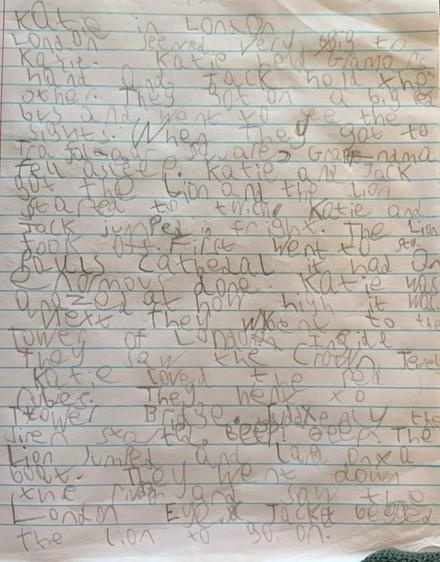 Katie in London
London seemed very big to
Katie. Katie held Grandma's
hand and Jack held the
other. They got on a big
bus and went to see the
sights. When They got to
Trafalgar Square, Grandma
fell asleep. Katie and Jack
got the Lion and the Lion
started to twich. Katie and
Jack jumped in fright. The Lion
took off. First went to st.
Pauls Cathedal it had an
enormous dome. Katie was
amazed at how high it was
Next they whent to the
Tower of London. Inside
they saw the Crown Jewel
Katie loved the red
rubes. They went to
Tower Bridge. the
siren starte. beep! beep! The
Lion Jumped and land on a
boat. They went down
the river and saw the
London Eye. Jack begged
the lion to go on.